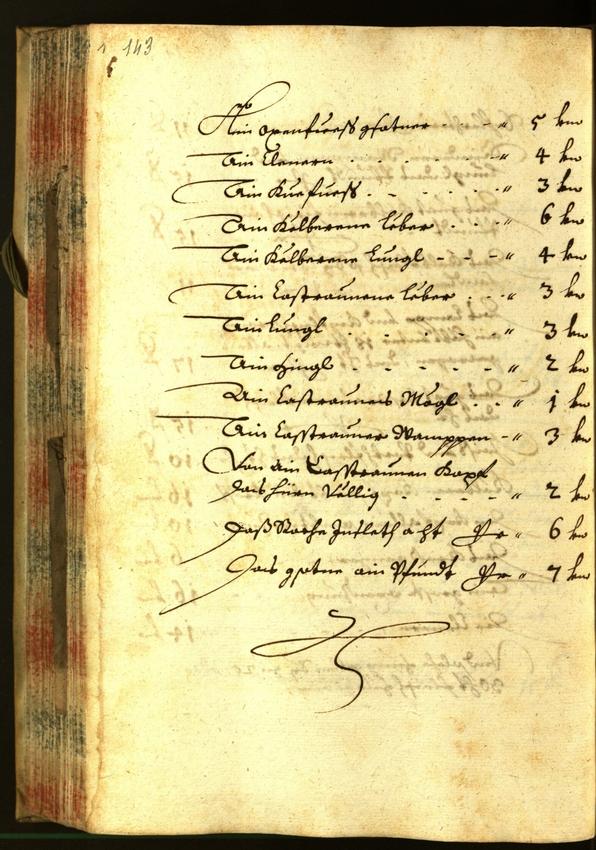 143
Ain oxenfuess gsotner " 5 kr
Ain Clenern " 4 kr
Ain Kuefuess " 3 kr
Ain Kelberene leber " 6 kr
Ain Kelberene lungl " 4 kr
Ain Castraunene leber " 3 kr
Ain lungl " 3 kr
Ain hingl " 2 kr
Ain Castrauneis Mägl " 1 kr
Ain Casstrauner Wamppen " 3 kr
Von ain Casstraunen Kopf
dais hirn Völlig " 2 kr
daß Roche Insleth acht Pr " 6 kr
dais gsotne ain Pfundt Pr " 7 kr